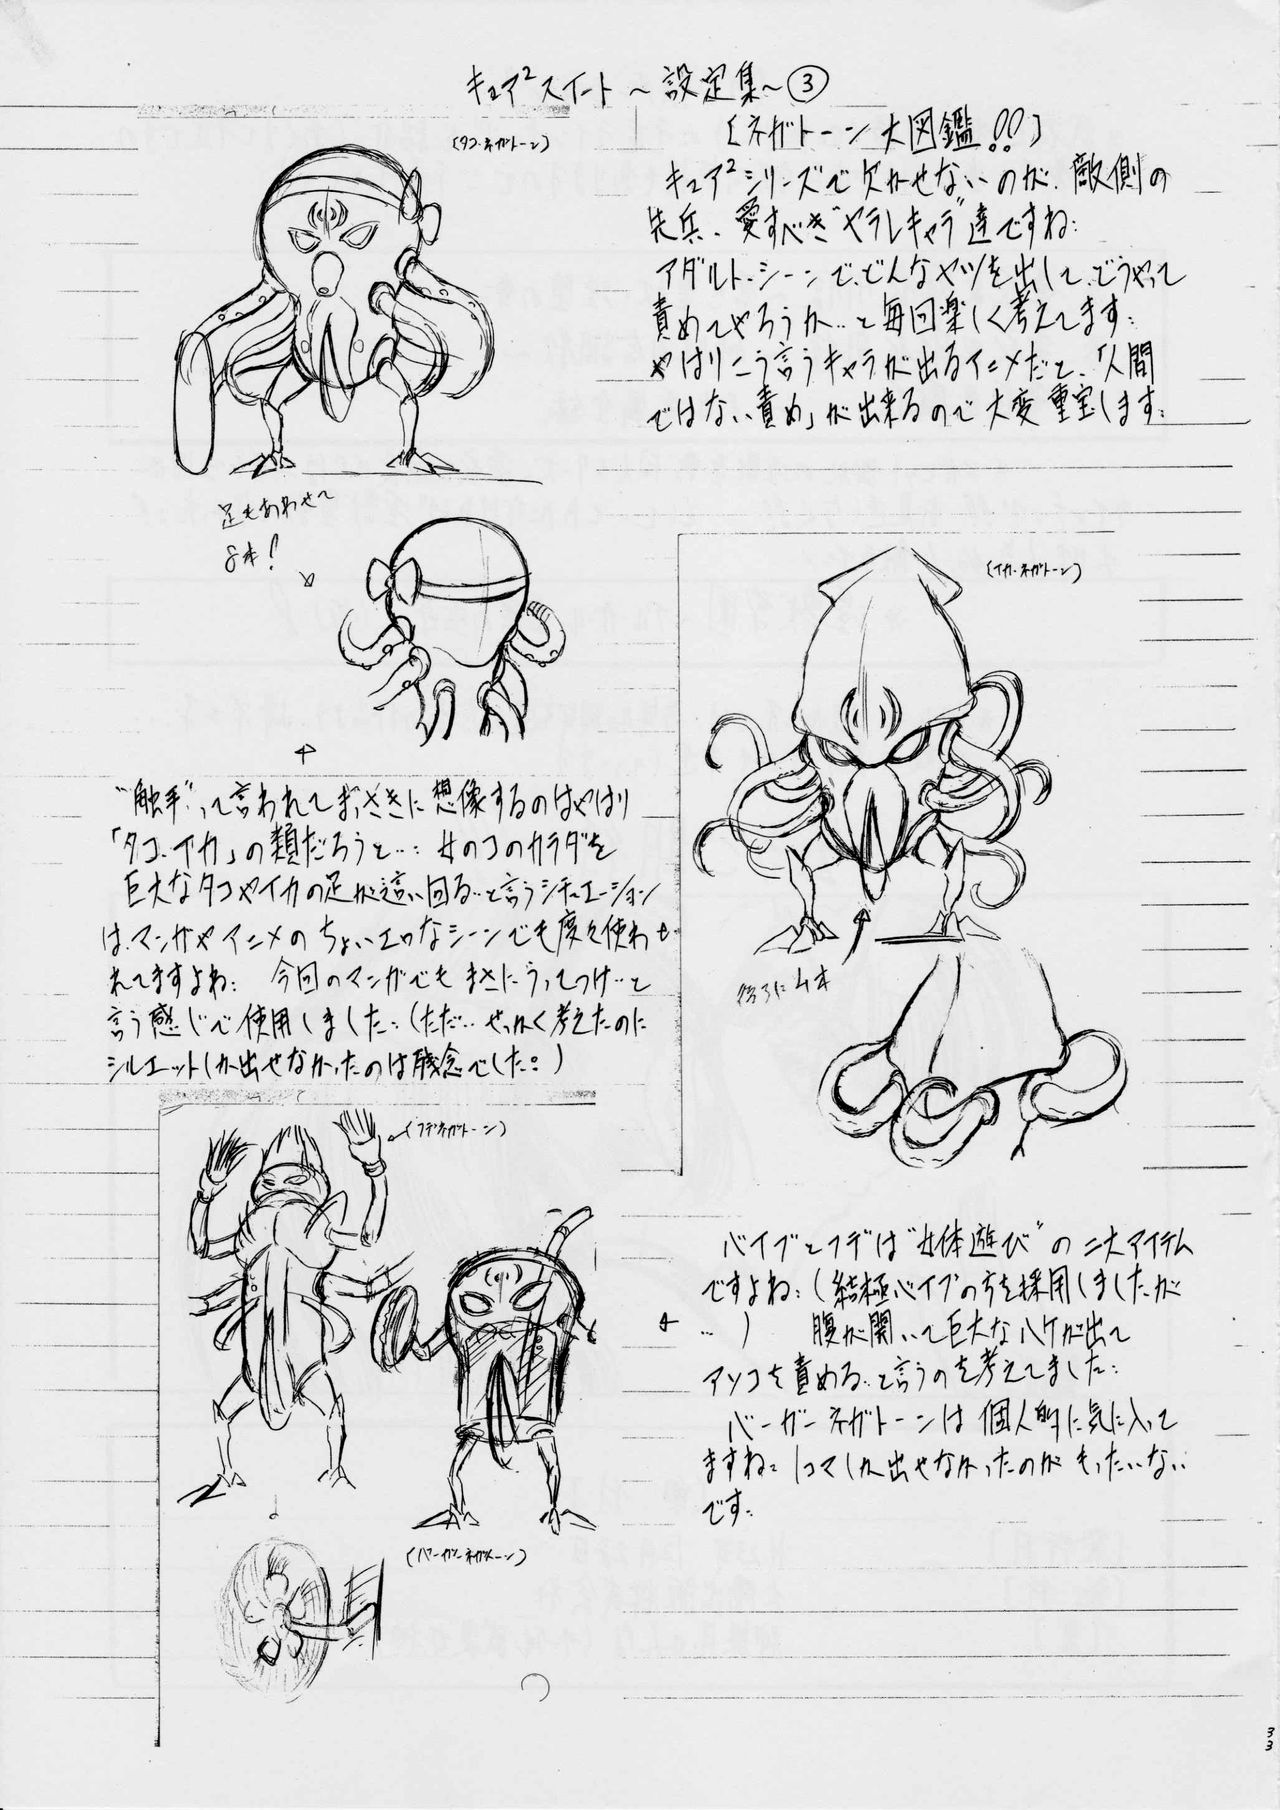 キュア²スイート～設定集～③
〔ネガトーン大図鑑!!〕
(タコ・ネガトーン)
キュア²シリーズで欠かせないのが、敵側の
先兵、愛すべき"ヤラレキャラ"達ですね:
アダルト・シーンで、どんなヤツを出して、どうやって
責めてやろうか‥と毎回楽しく考えてます:
やはりこう言うキャラが出るアニメだと、「人間
ではない責め」が出来るので大変重宝します:
足もあわせて
8本!
(イカ・ネガトーン)
"触手"って言われてまっさきに想像するのはやはり
「タコ、イカ」の類だろうと…: 女のコのカラダを
巨大なタコやイカの足が這い回る‥と言うシチュエーション
は、マンガやアニメのちょいエロなシーンでも度々使わ
れてますよね: 今回のマンガでもまさにうってつけ‥と
言う感じで使用しました:(ただ‥せっかく考えたのに
シルエットしか出せなかったのは残念でした:)
後ろに4本
(フデネガトーン)
バイブとフデは"女体遊び"の二大アイテム
ですよね:(結極バイブの方を採用しましたが
‥) 腹が開いて巨大なハケが出て
アソコを責める‥と言うのを考えてました:
バーガーネガトーンは個人的に気に入って
ますね: 1コマしか出せなかったのがもったいない
です:
(バーガーネガトーン)
33